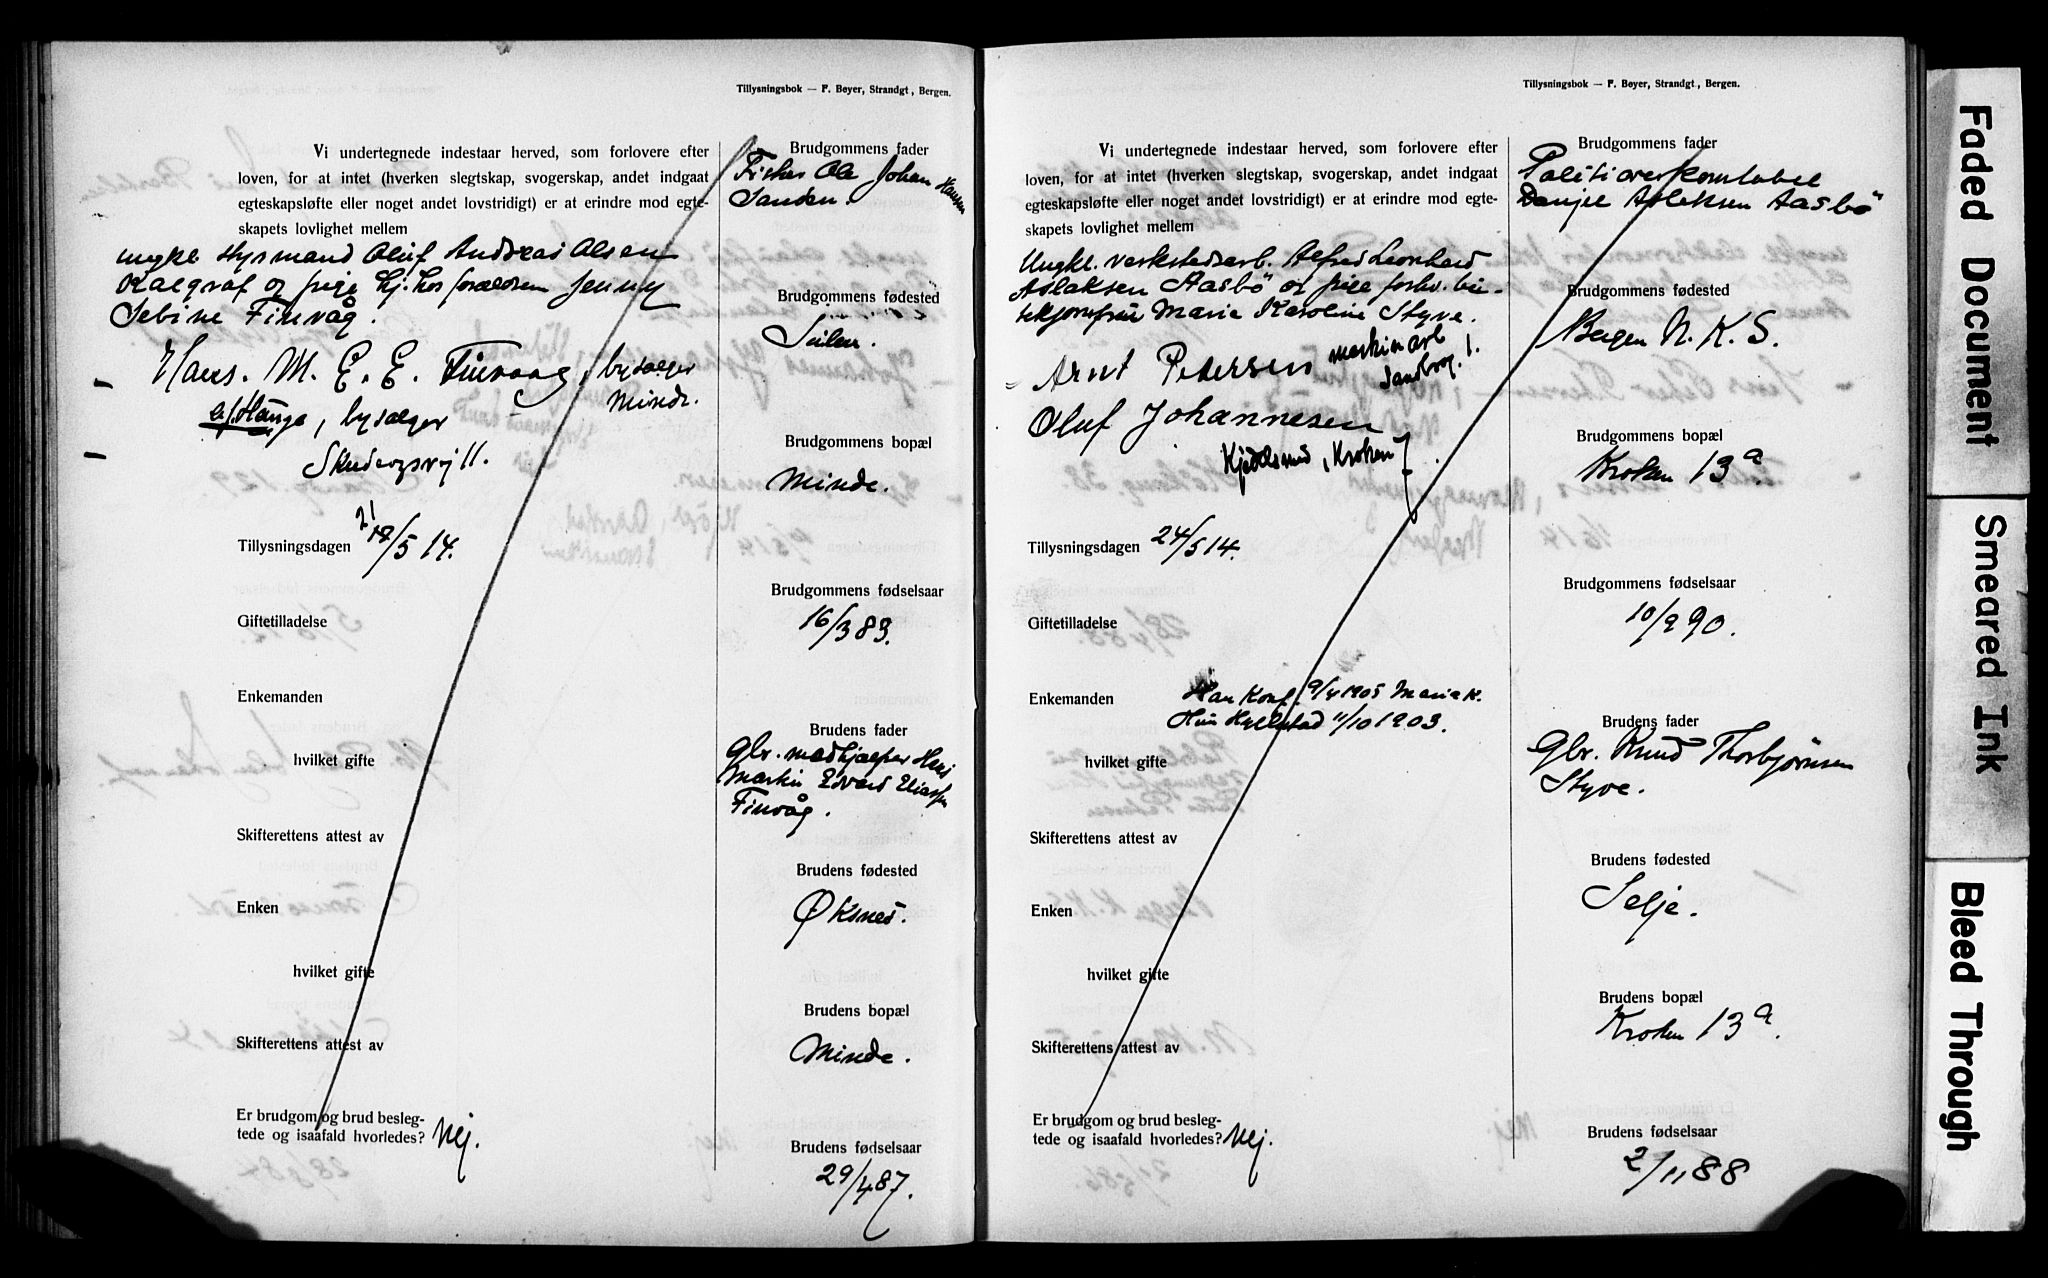 Tillysningsbok — F. Beyer, Strandgt, Bergen.
Vi undertegnede indestaar herved, som forlovere efter
loven, for at intet (hverken slegtskap, svogerskap, andet indgaat
egteskapsløfte eller noget andet lovstridigt) er at erindre mod egte-
skapets lovlighet mellem
ungkl styrmand Oluf Andreas Olsen
Kalgraf og pige hj. hos forældrene Jenny
Sebine Finvåg.
Hans. M. E. E. Finvaag, bysælger
Minde.
Hauge, bysælger
11.
Tillysningsdagen 21/5 14.
Giftetilladelse
Enkemanden
hvilket gifte
Skifterettens attest av
Enken
hvilket gifte
Skifterettens attest av
Er brudgom og brud besleg-
tede og isaafald hvorledes? Nej.
Brudgommens fader
Fisker Ole Johan Hansen
Sanden.
Brudgommens fødested
Brudgommens bopæl
Minde.
Brudgommens fødselsaar
16/3 83.
Brudens fader
Gbr. Hans
Martin Edvard Eliassen
Finvåg.
Brudens fødested
Øksnes.
Brudens bopæl
Minde.
Brudens fødselsaar
29/4 87.
Tillysningsbok — F. Beyer, Strandgt, Bergen.
Vi undertegnede indestaar herved, som forlovere efter
loven, for at intet (hverken slegtskap, svogerskap, andet indgaat
egteskapsløfte eller noget andet lovstridigt) er at erindre mod egte-
skapets lovlighet mellem
Ungkl. verkstedsarb. Alfred Leonhard
Aslaksen Aasbö og pige forhv. bu-
Marie Karoline Styve.
Arnt Petersen maskinarb
Sandbrog. 1.
Oluf Johannesen
Kjedelsmed, Kroken
Tillysningsdagen 24/5 14.
Giftetilladelse
Enkemanden Han Konf. 9/4 1905 Mariek.
Hun 11/10 1903.
hvilket gifte
Skifterettens attest av
Enken
hvilket gifte
Skifterettens attest av
Er brudgom og brud besleg-
tede og isaafald hvorledes? Nej.
Brudgommens fader
Politioverkonstabel
Danjel Aslaksen Aasbö
Brudgommens fødested
Bergen N. K. S.
Brudgommens bopæl
Kroken 13a
Brudgommens fødselsaar
10/9 90.
Brudens fader
Gbr. Knud Thorbjørnsen
Styve.
Brudens fødested
Selje.
Brudens bopæl
Kroken 13a.
Brudens fødselsaar
2/11 88
Faded Document
Smeared Ink
Bleed Through